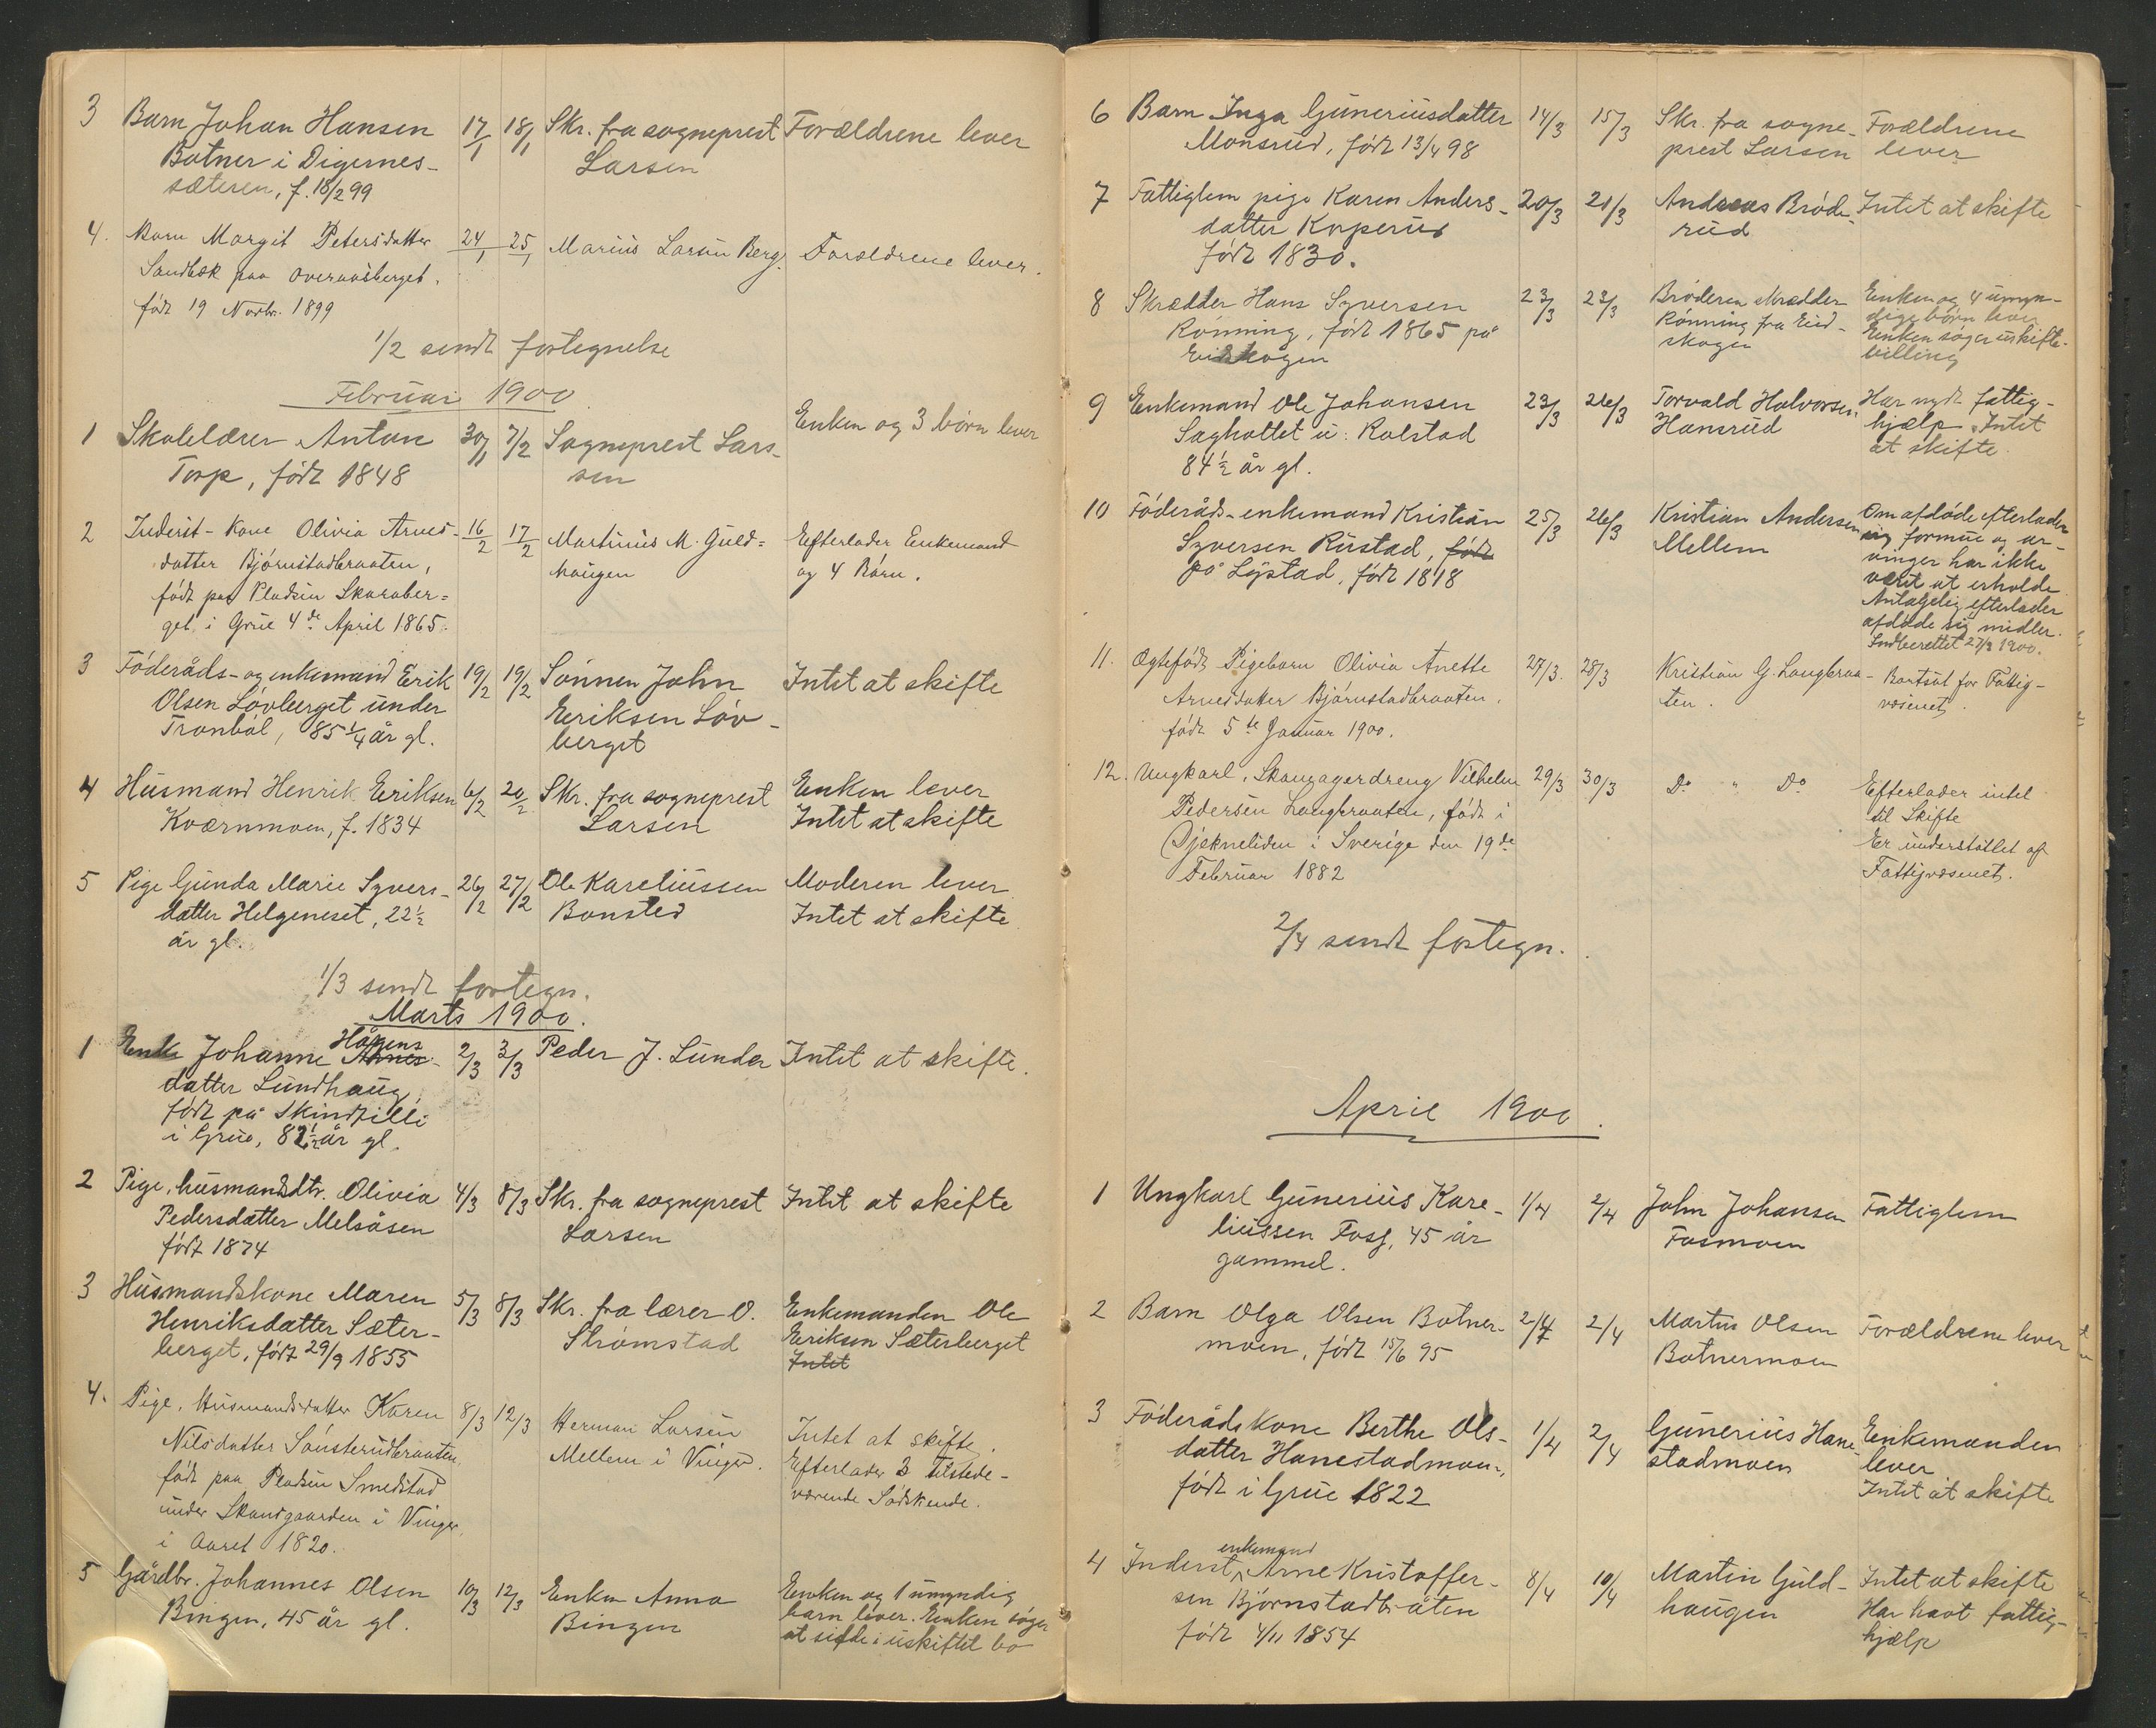 3 Barn Johan Hansen 17/1 18/1 Skr. fra sogneprest Forældrene lever
Botner i Digernes- Larsen
sæteren, f. 18/2 99
4. Barn Margit Petersdatter 24/1 25/1 Marius Larsen Berg. Forældrene lever.
Sandbæk paa Overaasberget.
født 19 Novbr. 1899
1/2 sendt fortegnelse
Februar 1900
1 Skolelærer Anton 30/1 7/2 Sogneprest Lar- Enken og 3 børn lever
Torp, født 1848 sen
2 Inderst-Kone Olivia Arnes- 16/2 17/2 Martinius M. Guld= Efterlader Enkemand
datter Bjørnstadbraaten, haugen og 4 Børn.
født paa Pladsen Skaraber=
get i Grue 4de April 1865.
3 Föderåds- og enkemand Erik 19/2 19/2 Sönnen John Intet at skifte
Olsen Lövberget under Eriksen Löv-
Tronböl, 85 1/4 år gl. berget
4 Husmand Henrik Eriksen 6/2 20/2 Skr. fra sogneprest Enken lever
Kværnmoen, f. 1834 Larsen Intet at skifte
5 Pige Gunda Marie Syvers- 26/2 27/2 Ole Kareliussen Moderen lever
datter Helgeneset, 22 1/2 Bonsted Intet at skifte
år gl.
1/3 sendt fortegn.
Marts 1900.
Hågens
1 Enke Johanne Arnes- 2/3 3/3 Peder J. Lunder Intet at skifte.
datter Lundhaug,
født på Skindpilli
i Grue, 82 1/2 år gl.
2 Pige, husmandsdtr. Olivia 4/3 8/3 Skr. fra sogneprest Intet at skifte
Pedersdatter Melsåsen Larsen
født 1874
3 Husmandskone Maren 5/3 8/3 Skr. fra lærer O. Enkemanden Ole
Henriksdatter Sæter- Strömstad Eriksen Sæterberget
berget, født 29/9 1855 Intet
4. Pige, Husmandsdatter Karen 8/3 12/3 Herman Larsen Intet at skifte.
Nilsdatter Sønsterudbraaten, Mellem i Vinger. Efterlader 3 tilstede-
født paa Pladsen Smedstad værende Sødskende.
under Skansgaarden i Vinger,
i Aaret 1820.
5 Gårdbr. Johannes Olsen 10/3 12/3 Enken Anna Enken og 1 umyndig
Bingen, 45 år gl. Bingen barn lever. Enken søger
at sidde i uskiftet bo
6 Barn Inga Guneriusdatter 14/3 15/3 Skr. fra sogne- Forældrene
Monsrud, født 13/4 98 prest Larsen lever
7 Fattiglem pige Karen Anders- 20/3 21/3 Andreas Bröde- Intet at skifte
datter Koperud rud
født 1830.
8 Skrædder Hans Syversen 23/3 23/3 Bröderen skrædder Enken og 4 umyn-
Rönning, født 1865 på Rönning fra Eid- dige børn lever
Eidskogen skogen Enken søger uskifte-
billing
9 Enkemand Ole Johansen 23/3 26/3 Torvald Halvorsen Har nydt fattig-
Saghottet u. Rolstad Hansrud hjælp. Intet
84 1/2 år gl. at skifte.
10 Föderåds-enkemand Kristian 25/3 26/3 Kristian Andersen Om afdøde efterlader
Syversen Rustad, født Mellem sig formue og ar-
på Lystad, født 1818 vinger har ikke
været at erholde
Antagelig efterlader
afdøde sig midler.
Indberettet 27/3 1900.
11. Ægtefødt Pigebarn Olivia Anette 27/3. 28/3 Kristian G. Langbraa- Bortsat for Fattig-
Arnesdatter Bjørnstadbraaten. ten. væsenet.
født 5te Januar 1900.
12. Ungkarl, Skomagerdreng Vilhelm 29/3 30/3 Do " Do Efterlader intet
Pedersen Langbraaten, født i til Skifte
Djekneliden i Sverige den 19de Er understøttet af
Februar 1882 Fattigvæsenet.
2/4 sendt fortegn.
April 1900.
1 Ungkarl Gunerius Kare- 1/4 2/4 John Johansen Fattiglem
liussen Foss, 45 år Fosmoen
gammel.
2 Barn Olga Olsen Botner- 2/4 2/4 Martin Olsen Forældrene lever
moen, født 15/6 95 Botnermoen
3 Föderådskone Berthe Ols- 1/4 2/4 Gunerius Hane- Enkemanden
datter Hanestadmoen, stadmoen lever
født i Grue 1822 Intet at skifte
enkemand
4 Inderst, Arne Kristoffer- 8/4 10/4 Martin Guld- Intet at skifte
sen Björnstadbråten haugen Har havt fattig-
født 4/11 1854 hjælp